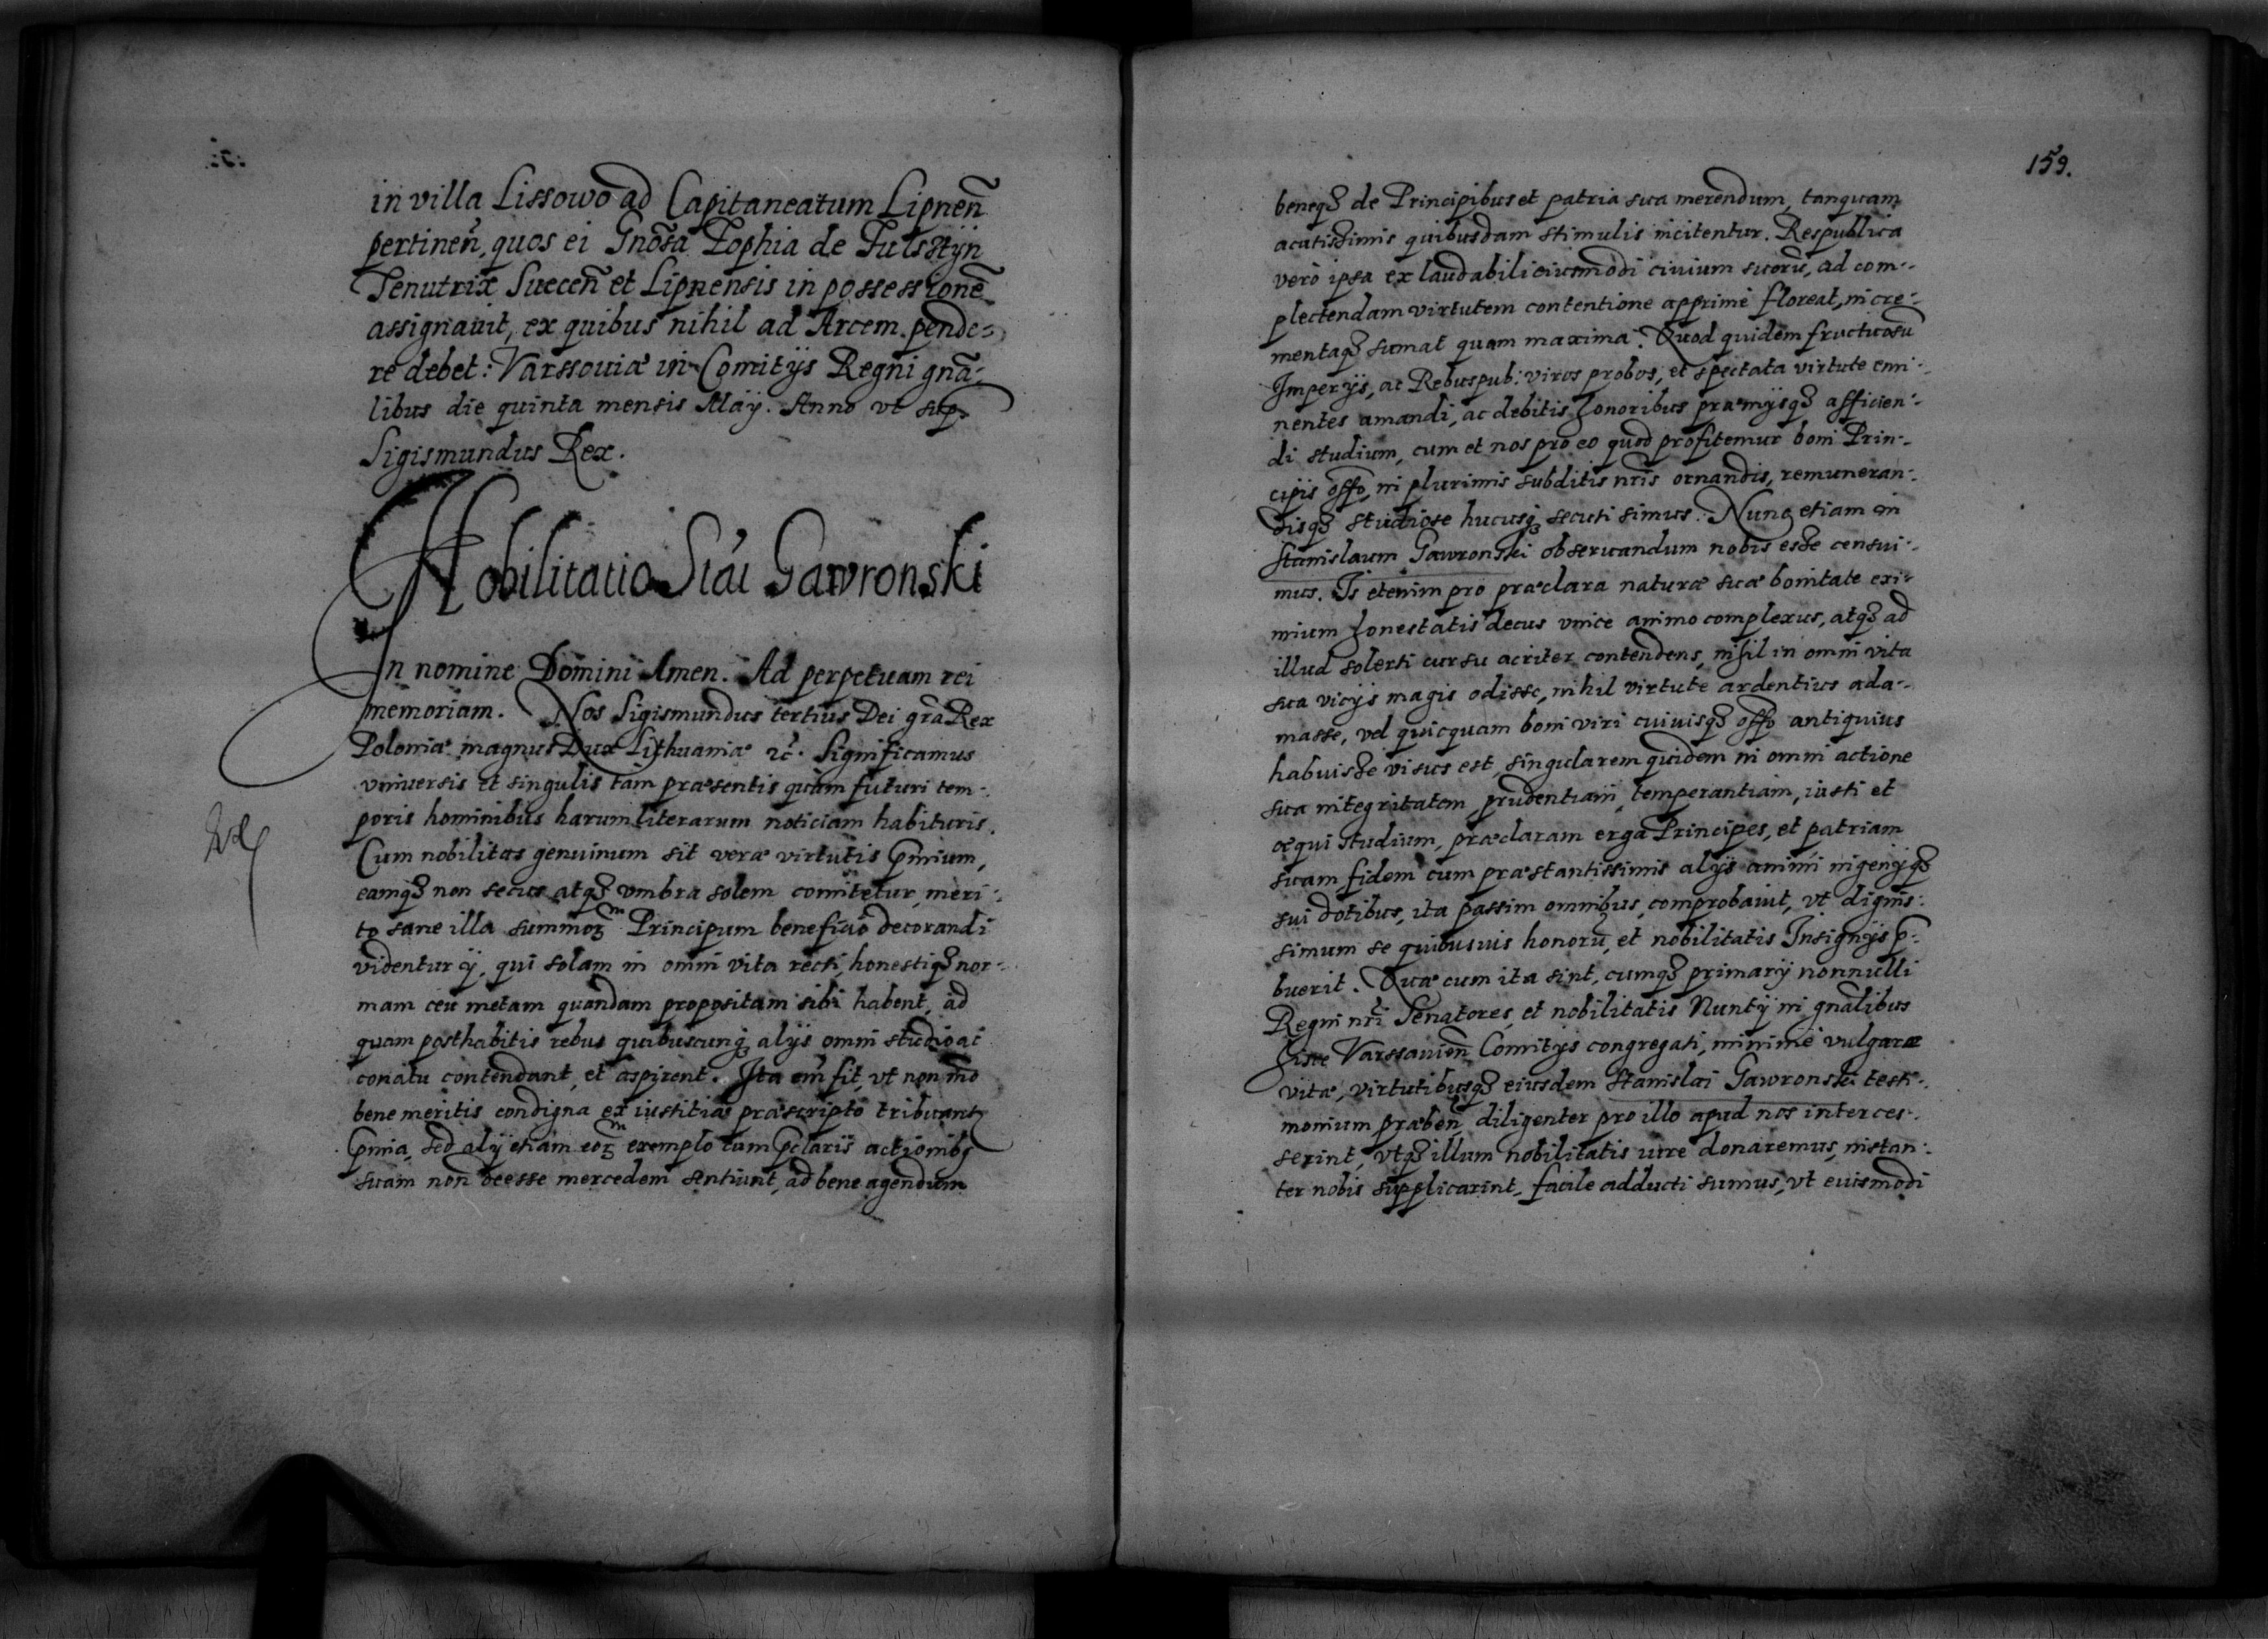 in villa Lissowo ad Capitaneatum Lipneñ
pertineñ, quos ei Gnõsa Zophia de Fulsstÿn
Tenutrix Sueceñ et Lipnensis in possessionẽ
assignauit, ex quibus nihil ad Arcem pende=
re debet: Varssouiæ in Comitijs Regni gnã=
libus die quinta mensis Maÿ. Anno vt sup.
Sigismundus Rex.
Nobilitatio Stãi Gawronski
In nomine Domini Amen. Ad perpetuam rei
memoriam. Nos Sigismundus tertius Dei grã Rex
Poloniæ magnus Dux Lithuaniæ &c̃. Significamus
vniuersis et singulis tam præsentis quàm futuri tem-
poris hominibus harum literarum noticiam habituris.
Cum nobilitas genuinum sit veræ virtutis p̃mium,
eamqȝ non secus atqȝ vmbra solem comitetur, meri-
to sane illa summoꝝ Principum beneficio decorandi
videntur ij, qui solam in omni vita recti, honestiqȝ nor-
mam ceu metam quandam propositam sibi habent, ad
quam posthabitis rebus quibuscunqȝ alijs omni studio ac
conatu contendant, et aspirent. Ita em̃ fit, vt non mõ
bene meritis condigna ex iustitiæ præscripto tribuant
p̃mia, sed alij etiam eoꝝ exemplo tum p̃claris actionibȝ
suam non deesse mercedem sentiunt, ad bene agendum
159.
beneqȝ de Principibus et patria sua merendum, tanquam
acutissimis quibusdam stimulis incitentur. Respublica
verò ipsa ex laudabili eiusmodi ciuium suorũ, ad com-
plectendam virtutem contentione apprimè floreat, incre-
mentaqȝ sumat quam maxima. Quod quidem fructuosũ
Imperijs, ac Rebuspub: viros probos, et spectata virtute emi-
nentes amandi, ac debitis honoribus præmijsqȝ afficien-
di studium, cum et nos pro eo quod profitemur boni Prin-
cipis offõ, in plurimis subditis nr̃is ornandis, remuneran-
disqȝ studiose hucusqȝ secuti simus. Nunc etiam in
Stanislaum Gawronski obseruandum nobis esse censui-
mus. Is etenim pro præclara naturæ suæ bonitate exi-
mium honestatis decus vnice animo complexus, atqȝ ad
illud solerti cursu acriter contendens, nihil in omni vita
sua vicijs magis odisse, nihil virtute ardentius ada-
masse, vel quicquam boni viri cuiusqȝ offõ antiquius
habuisse visus est, singularem quidem in omni actione
sua integritatem, prudentiam, temperantiam, iusti et
æqui studium, præclaram erga Principes, et patriam
suam fidem cum præstantissimis alijs animi ingenijqȝ
sui dotibus, ita passim omnibus comprobauit, vt dignis-
simum se quibusuis honorũ, et nobilitatis Insignijs p̃-
buerit. Quæ cum ita sint, cumqȝ primarij nonnulli
Regni nr̃i Senatores, et nobilitatis Nuntij in gnãlibus
hisce Varssauieñ Comitijs congregati, minimè vulgaræ
vitæ, virtutibusqȝ eiusdem Stanislai Gawronski testi-
monium præbeñ diligenter pro illo apud nos interces-
serint, vtqȝ illum nobilitatis iure donaremus, instan-
ter nobis supplicarint, facile adducti sumus, vt eiusmodi